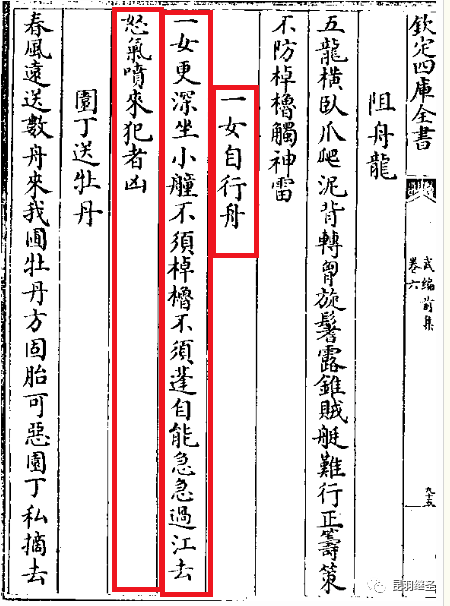 欽定四庫全書
武編前集
卷六
九十五
阻舟龍
五龍橫臥爪爬泥背轉胷旋鬐露錐賊艇難行正籌策
不防棹櫓觸神雷
一女自行舟
一女更深坐小艟不須棹櫓不須蓬自能急急過江去
怒氣噴來犯者凶
園丁送牡丹
春風遠送數舟來我圃牡丹方固胎可惡園丁私摘去
昆羽继圣